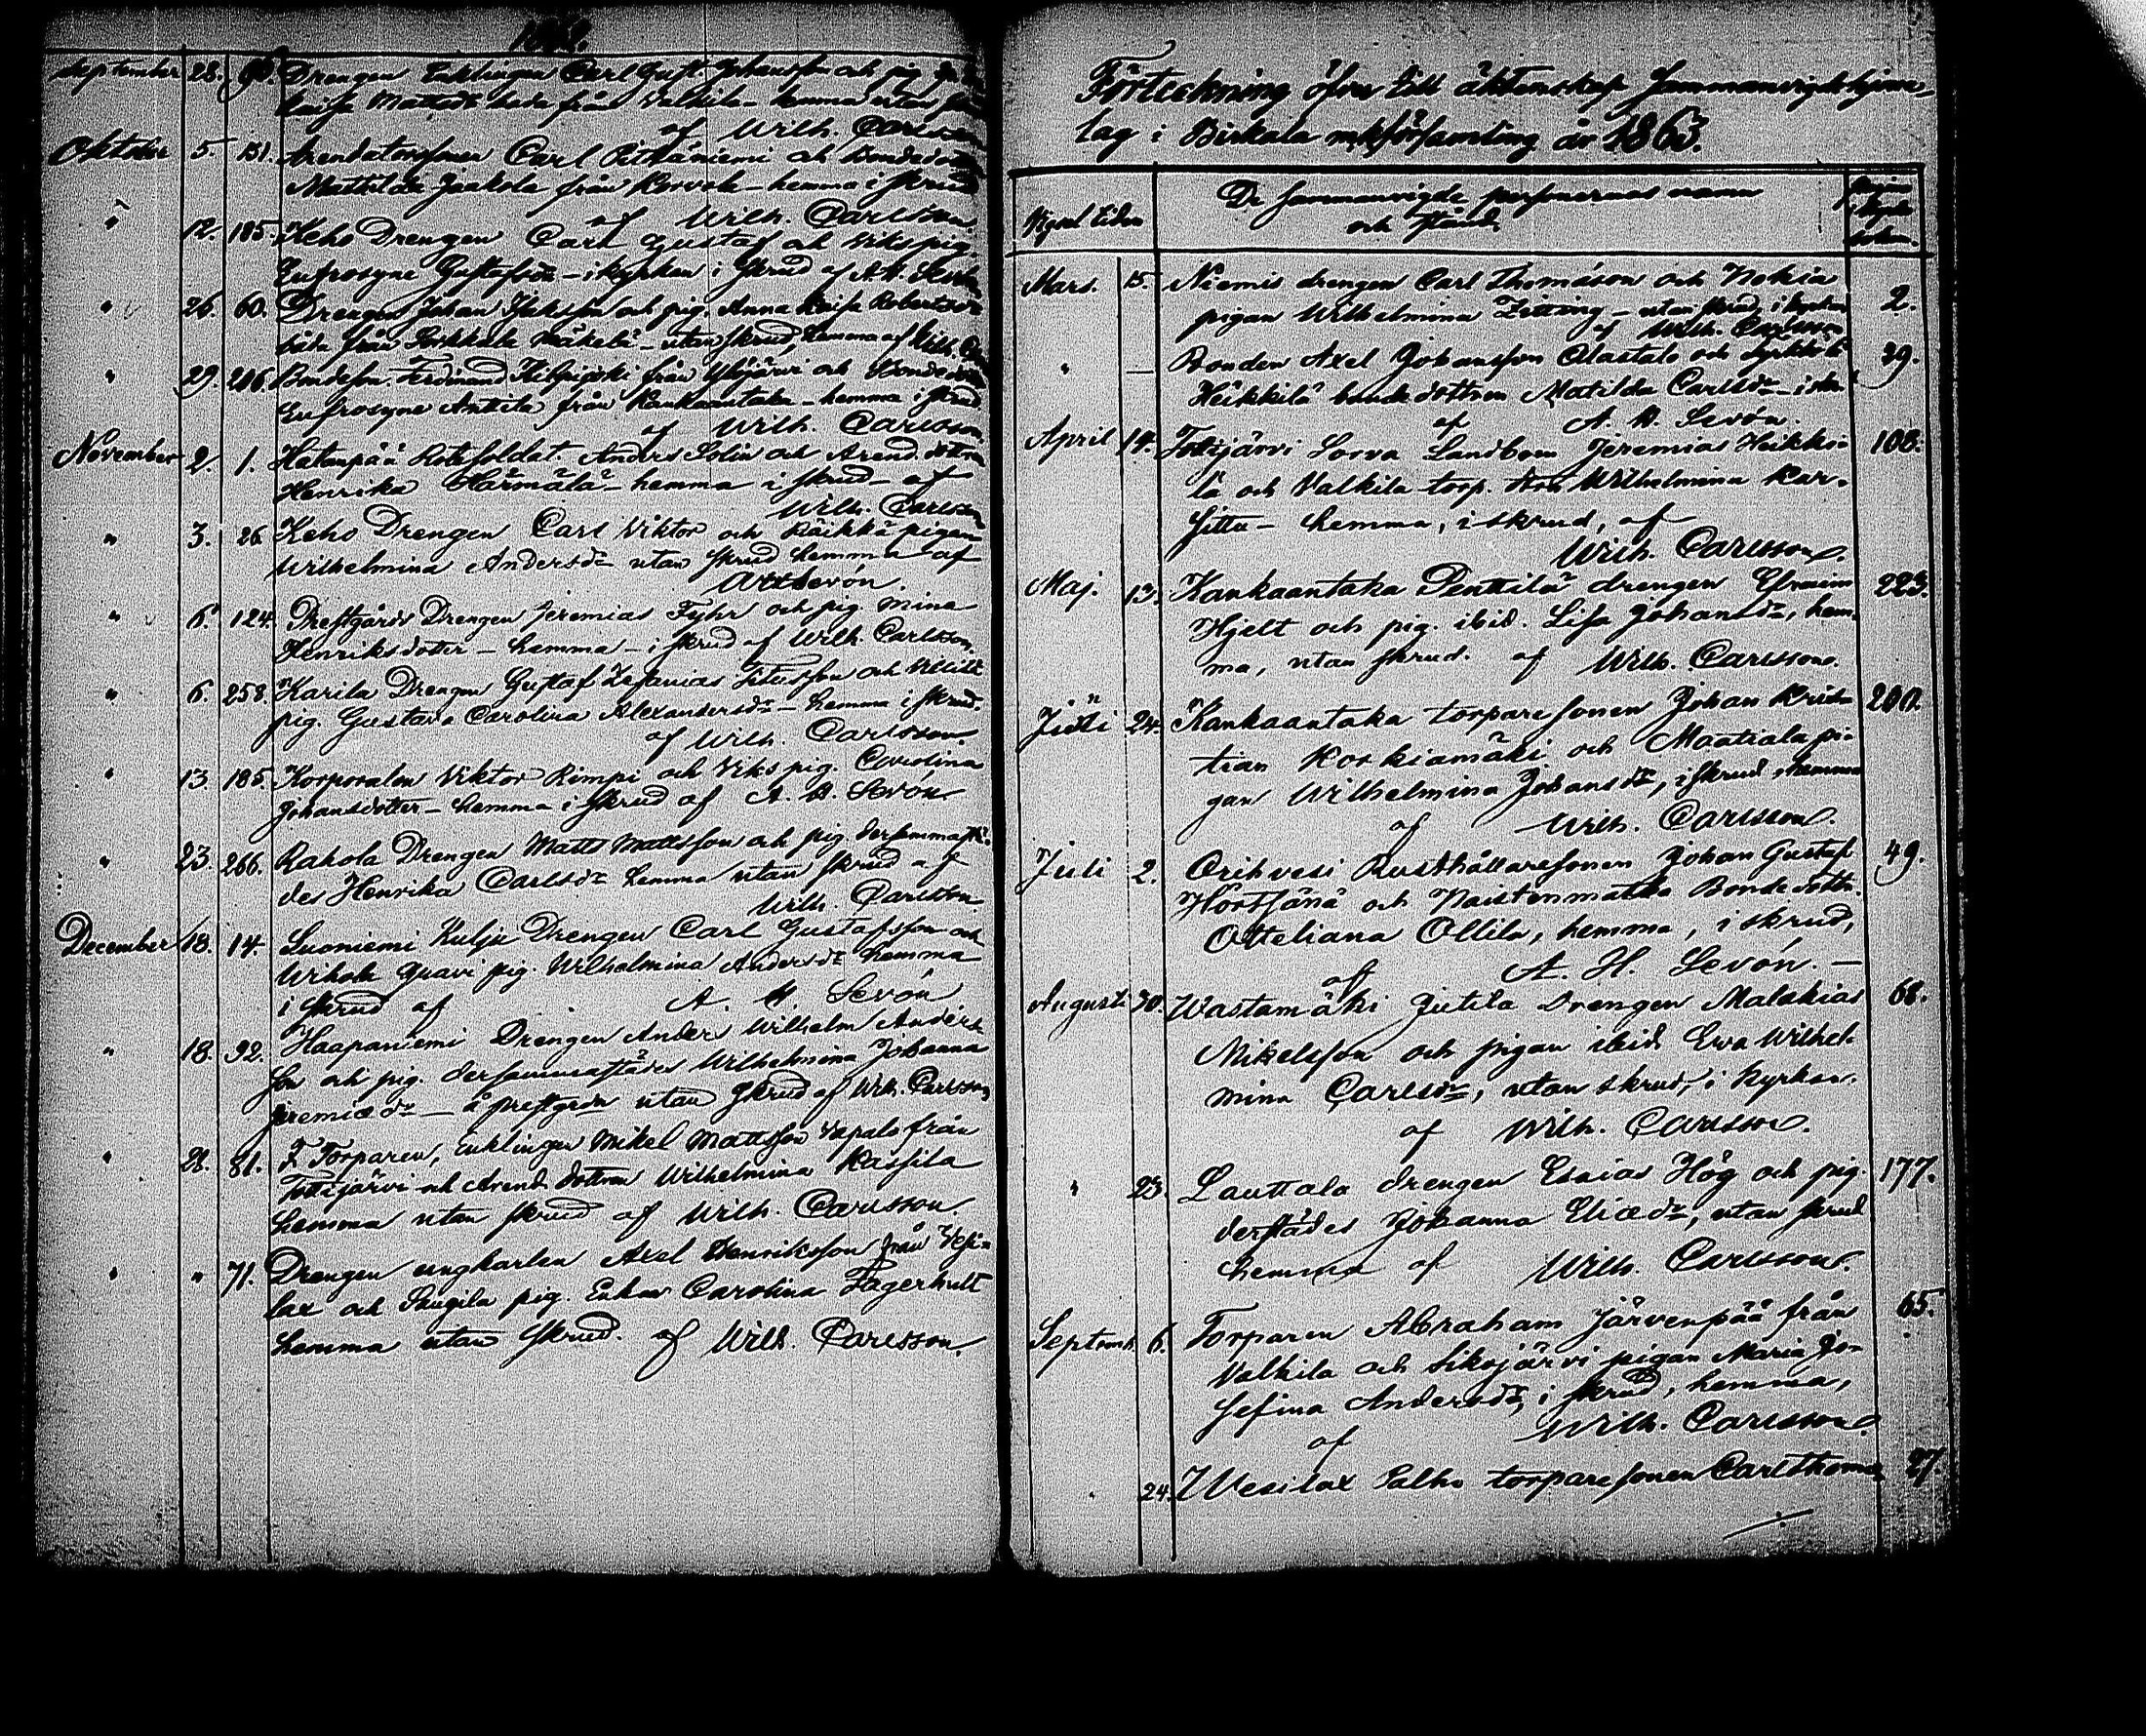 September 28. 90. Drengen Enklingen Carl Gust. Johansson och pig.
Mattsdr båda från Valkila hemma utan
af Wilh. Carlsson
Oktober 5. 151. Arendatorssonen Carl Pitkäniemi och Bondedottren
Mathilda Jaakola från Korvola - hemma i skrud
af Wilh. Carlsson.
" 12. 185. Keho Drengen Carl Gustaf och Viks pig.
Eufrosyne Gustafsdr - i kyrkan i skrud af A. H. Sevón
" 26. 60. Drengen Johan Isaksson och pig. Anna Kaisa Robertsdr
båda från Sorkkala Mäkelä - utan skrud, hemma af Wilh.
" 29. 206. Bondeson. Ferdinand från Ylöjärvi och Bondedottren
Eufrosyne Anttila från Kankaantaka - hemma i skrud.
af Wilh. Carlsson.
November 2. 1. Hatanpää Rotesoldat Anders Solin och Arend. dottren
Henrika Härmälä - hemma i skrud - af
Wilh. Carlsson
" 3. 26. Keho Drengen Carl Viktor och Räikkä pigan
Wilhelmina Andersdr utan skrud hemma af
A H Sevón.
" 6. 124. Prestgårds Drengen Jeremias Fyhr och pig. Mina
Henriksdotter - hemma - i skrud af Wilh. Carlsson.
" 6. 258. Karila Drengen Gustaf Zefanias Titusson och
pig. Gustava Carolina Alexandersdr - hemma i skrud.
af Wilh. Carlsson.
" 13. 185. Korporalen Viktor Rimpi och Viks pig. Carolina
Johansdotter - hemma i skrud af A. H. Sevón
" 23. 266. Rahola Drengen Matts Mattsson och pig. dersammastä-
des Henrika Carlsdr hemma utan skrud af
Wilh. Carlsson.
December 18. 14. Luoniemi Kulju Drengen Carl Gustafsson och
Wihola pig. Wilhelmina Andersdr hemma
i skrud af A. H. Sevón
" 18. 92. Haapaniemi Drengen Anders Wilhelm Anders-
son och pig. dersammastädes Wilhelmina Johanna
Jeremiædr - å prestgrdn utan skrud af Wilh. Carlsson,
" 28. 81. F. Torparen, Enklingen Mikel Mattsson Vapalo från
Tottijärvi och Arend. dottren Wilhelmina Kassila
hemma utan skrud af Wilh. Carlsson.
" " 71. Drengen ungkarlen Axel Henriksson från Vesi-
lax och Pengila pig. Enkan Carolina Fagerhult
hemma utan skrud. af Wilh. Carlsson.
Förteckning öfver till äktenskap sammanvigde hjone-
lag i Birkala m.k.församling år 1863.
Vigsel tiden
De sammanvigde personernas namn
och stånd.
Mars. 15. Niemis drengen Carl Thomasson och Nokia 2.
pigan Wilhelmina Zitting - utan skrud, i kyrkan
af Wilh. Carlsson
" — Bonden Axel Johansson Alastalo och Pyhkölä 39.
Heikkilä bonde dottren Matilda Carlsdr -
af A. H. Sevón.
April 14. Tottijärvi Sorva Landbon Jeremias Heikki- 108.
lä och Valkila torp. Wilhelmina Kar-
sittu - hemma, i skrud, af
Wilh. Carlsson.
Maj. 13. Kankaantaka Penttilä drengen Efraim 223.
Hjelt och pig. ibid. Lisa Johansdr, hem-
ma, utan skrud. af Wilh. Carlsson.
Juni 24. Kankaantaka torparesonen Johan Kris- 200.
tian Korkiamäki och Maatiala pi-
gan Wilhelmina Johansdr, i skrud, hemma
af Wilh. Carlsson.
Juli 2. Orihvesi Rusthållaresonen Johan Gustaf 49.
Hörtsänä och Naistenmatka Bonde dottr.
Otteliana Ollila, hemma, i skrud,
af A. H. Sevón. —
Augusti 30. Wastamäki Jutila Drengen Malakias 68.
Mikelsson och pigan ibid. Eva Wilhel-
mina Carlsdr, utan skrud, i kyrkan.
af Wilh. Carlsson.
" 23. Lauttala drengen Esaias Hög och pig. 177.
derstädes Johanna Eliædr, utan skrud
hemma af Wilh. Carlsson.
Septemb. 6. Torparen Abraham Järvenpää från 65.
Valkila och Sikojärvi pigan Maria Jo-
sefina Andersdr, i skrud, hemma,
af Wilh. Carlsson.
" 24. Wesilax Palho torparesonen Carl Thomas 27.